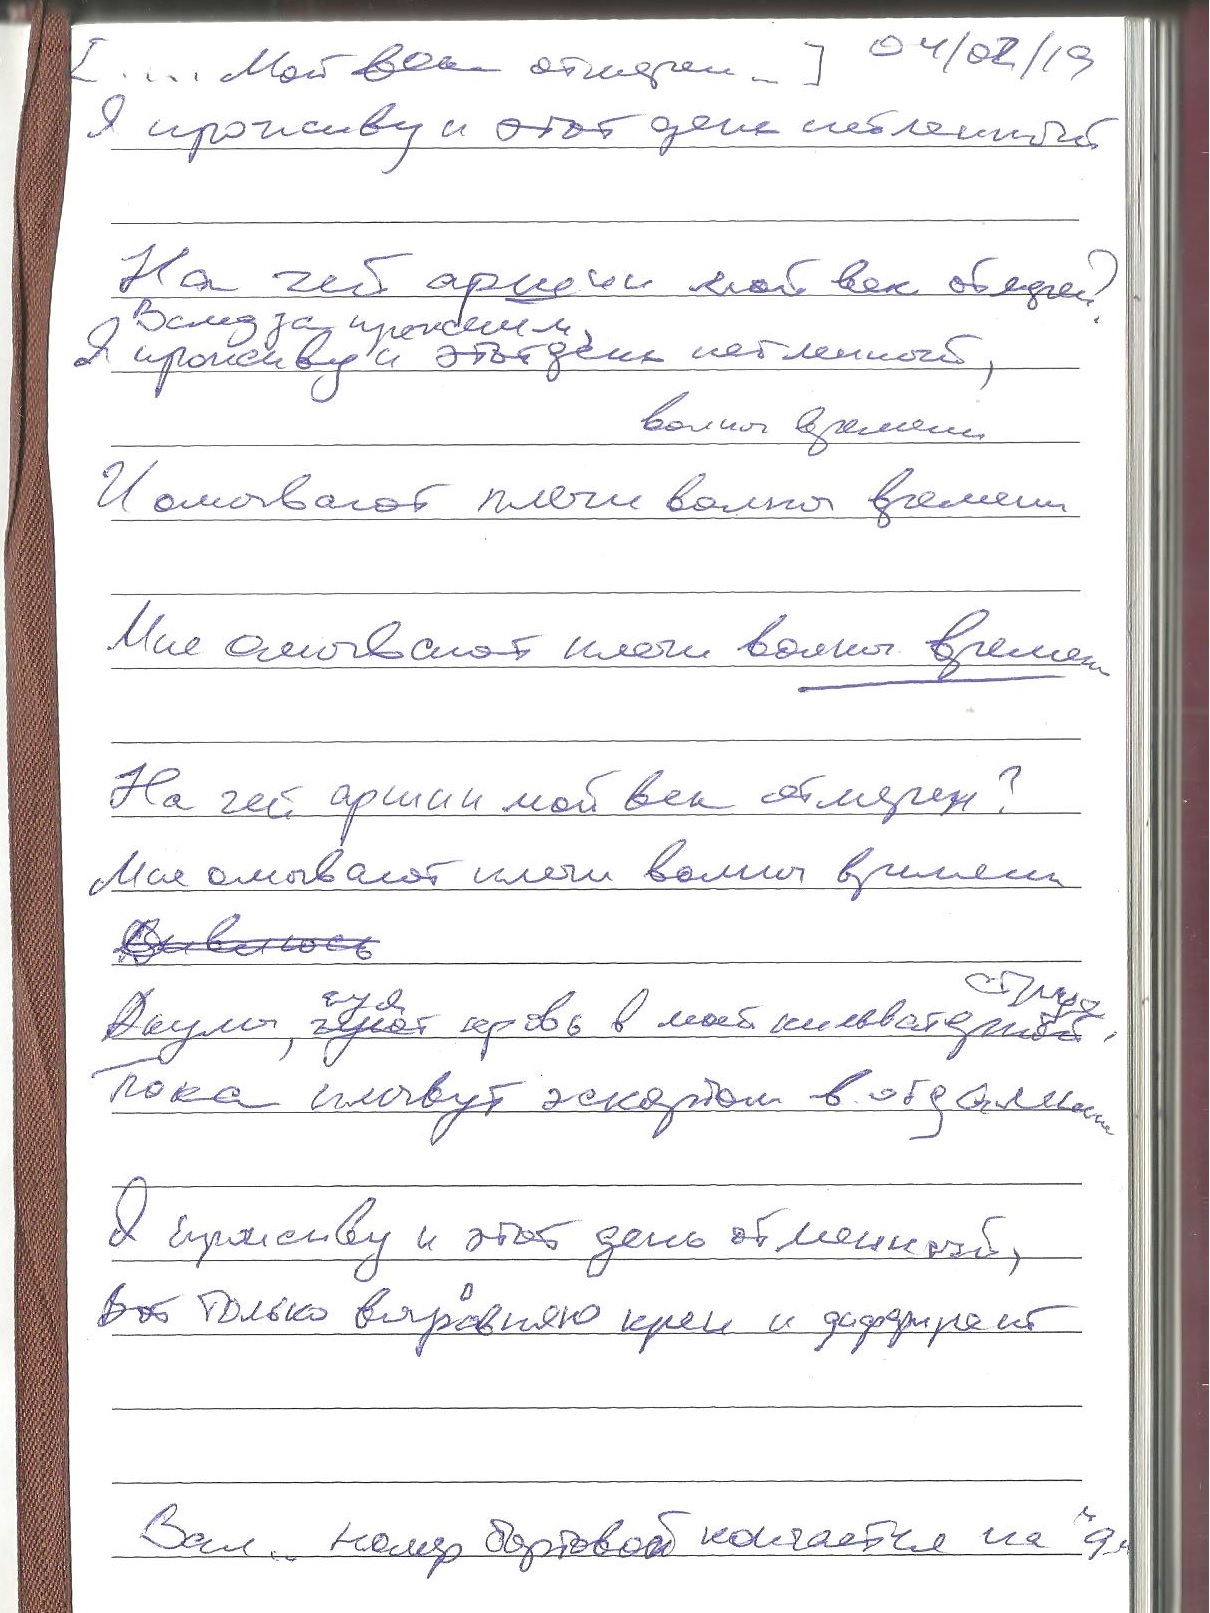 [.... Мой век отмерен...] 04/02/19
Я проживу и этот день нетленный
На чей аршин мой век отмерен?
Вслед за прожитым,
Я проживу и этот день нетленный,
волны времени
И омывают плечи волны времени
Мне омывают плечи волны времени
На чей аршин мой век отмерен?
Мне омывают плечи волны времени
Дивлюсь
струе,
Акулы, чуя чуют кровь в моей кильватерной
Пока плывут эскортом в отдалении
Я проживу и этот день отменный,
Вот только выровняю крен и дифферент
Вам.. номер бортовой кончается на "9"